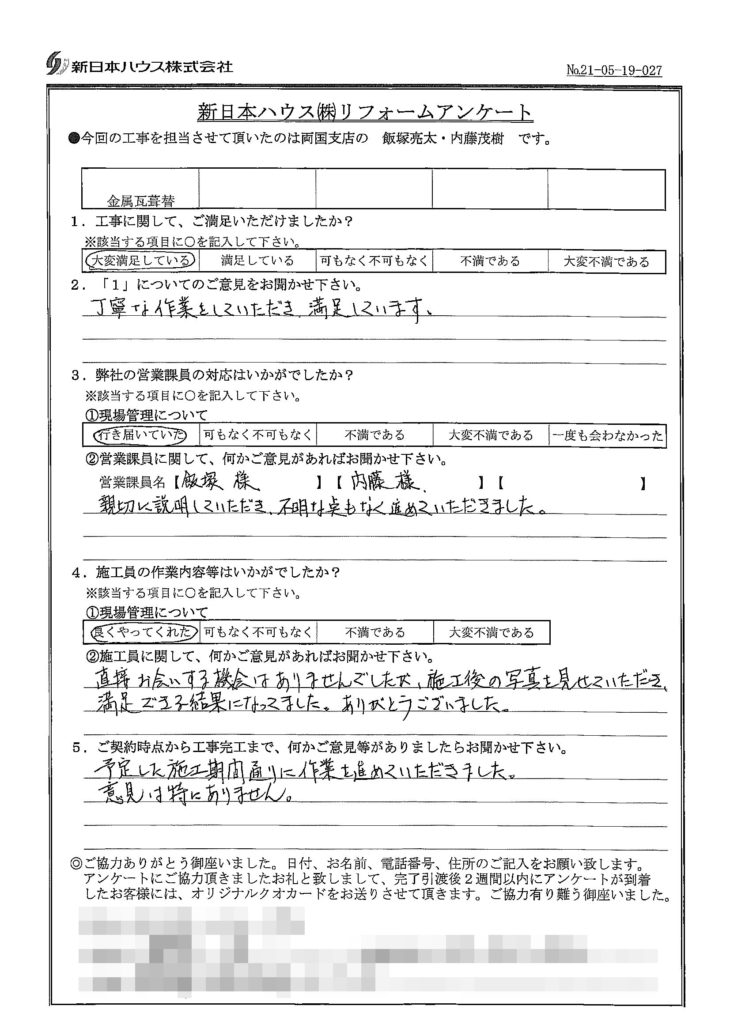 新日本ハウス株式会社
№21-05-19-027
新日本ハウス㈱リフォームアンケート
●今回の工事を担当させて頂いたのは両国支店の 飯塚亮太・内藤茂樹 です。
金属瓦葺替
1．工事に関して、ご満足いただけましたか？
※該当する項目に○を記入して下さい。
大変満足している 満足している 可もなく不可もなく 不満である 大変不満である
2．「1」についてのご意見をお聞かせ下さい。
丁寧な作業をしていただき、満足しています。
3．弊社の営業課員の対応はいかがでしたか？
※該当する項目に○を記入して下さい。
①現場管理について
行き届いていた 可もなく不可もなく 不満である 大変不満である 一度も会わなかった
②営業課員に関して、何かご意見があればお聞かせ下さい。
営業課員名【飯塚 様 】【 内藤 様 】【 】
親切に説明していただき、不明な点もなく進めていただきました。
4．施工員の作業内容等はいかがでしたか？
※該当する項目に○を記入して下さい。
①現場管理について
良くやってくれた 可もなく不可もなく 不満である 大変不満である
②施工員に関して、何かご意見があればお聞かせ下さい。
直接お会いする機会はありませんでしたが、施工後の写真を見せていただき、
満足できる結果になってました。ありがとうございました。
5．ご契約時点から工事完工まで、何かご意見等がありましたらお聞かせ下さい。
予定した施工期間通りに作業を進めていただきました。
意見は特にありません。
◎ご協力ありがとう御座いました。日付、お名前、電話番号、住所のご記入をお願い致します。
アンケートにご協力頂きましたお礼と致しまして、完了引渡後２週間以内にアンケートが到着
したお客様には、オリジナルクオカードをお送りさせて頂きます。ご協力有り難う御座いました。